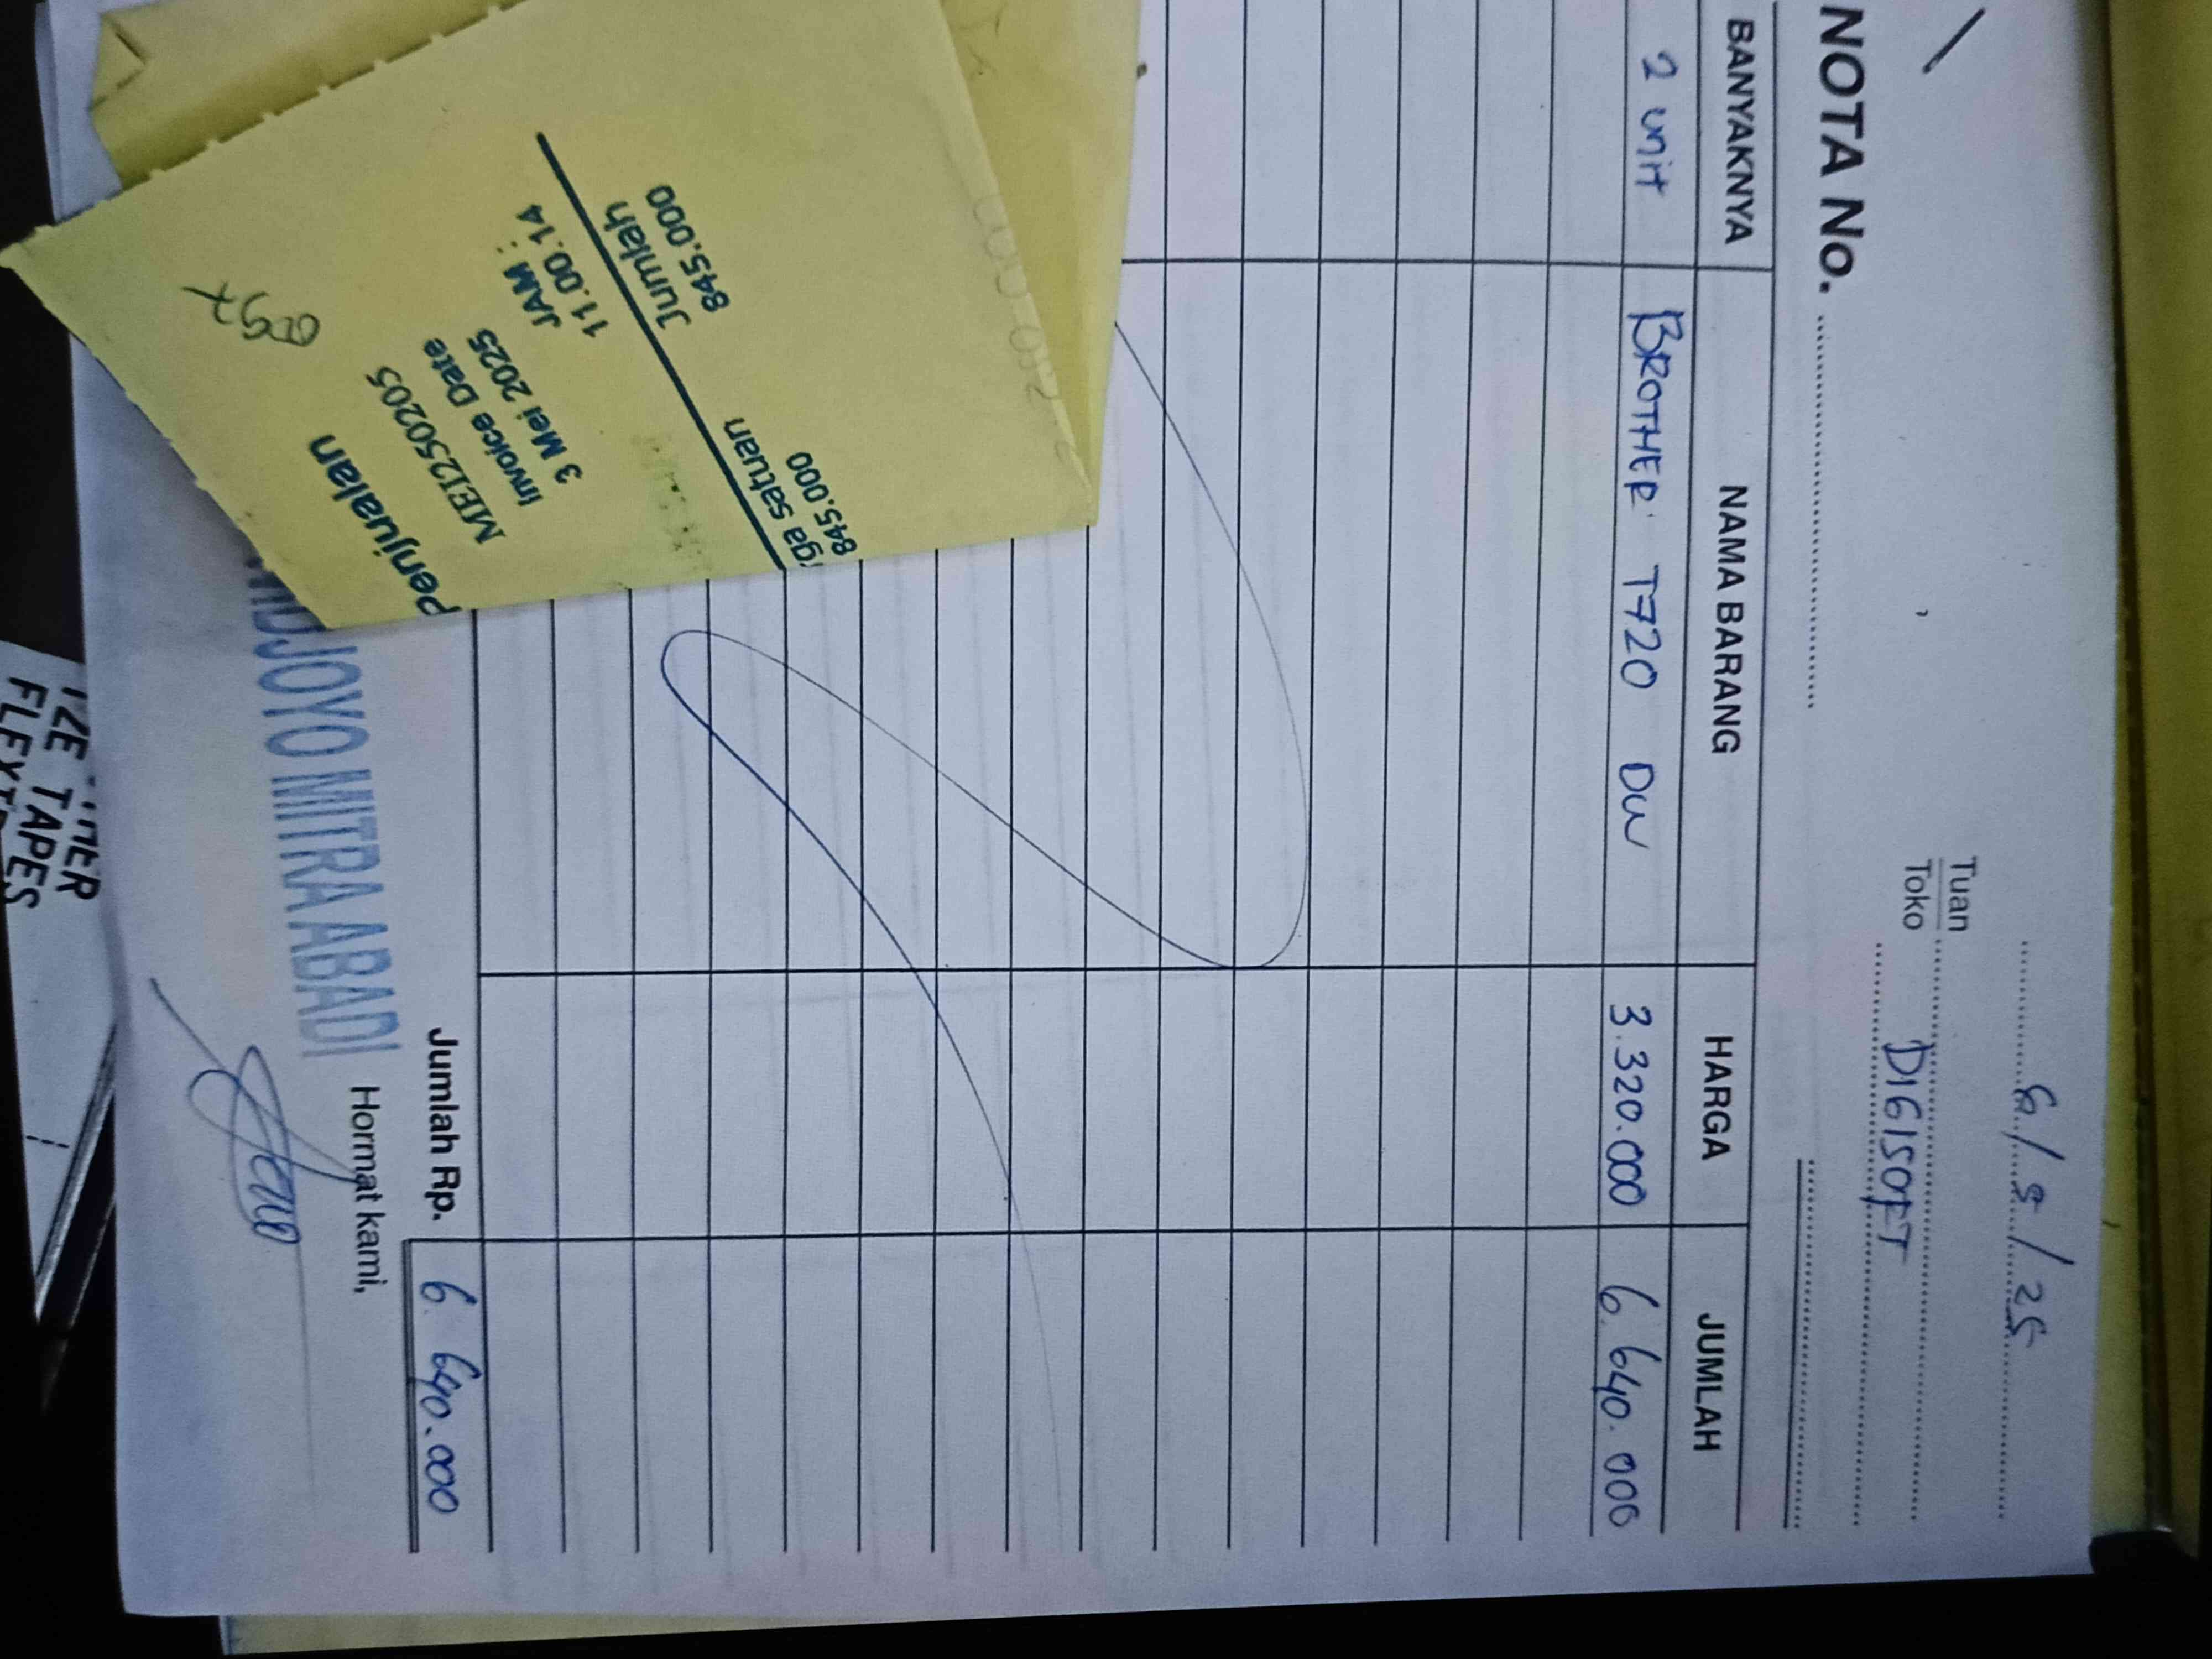 6/5/25
Tuan
Toko DIGISOFT
NOTA No.
BANYAKNYA NAMA BARANG HARGA JUMLAH
2 unit BROTHER T720 DW 3.320.000 6.640.000
Jumlah Rp. 6.640.000
Hormat kami,
JOYO MITRA ABADI
Penjualan
MEI250205
Invoice Date JAM :
3 Mei 2025 11.00.14
rga satuan Jumlah
845.000 845.000
TZE
TAPES